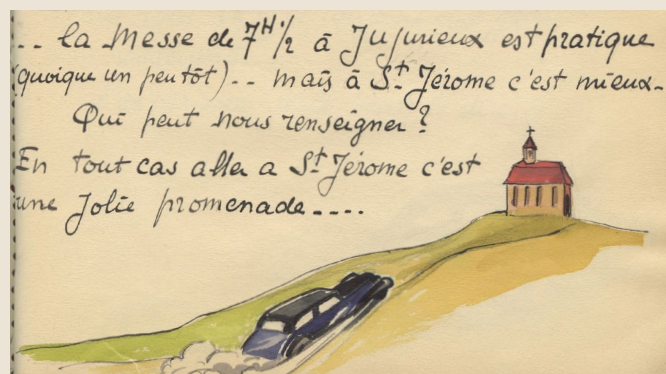 .. la Messe de 7H 1/2 à Jujurieux est pratique
(quoique un peu tôt).. mais à St Jérome c'est mieux-
Qui peut nous renseigner ?
En tout cas aller a St Jérome c'est
une Jolie promenade....